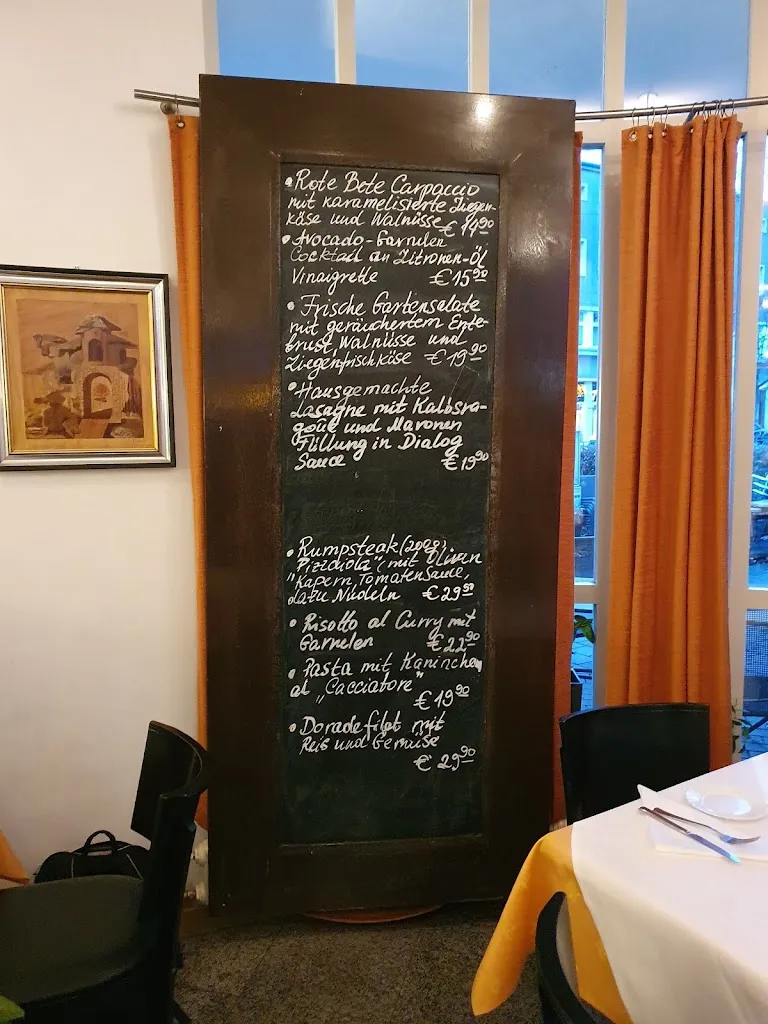 • Rote Bete Carpaccio
mit karamelisierte Ziegen-
käse und Walnüsse € 14,90
• Avocado-Garnelen
Cocktail an Zitronen-Öl
Vinaigrette € 15,90
• Frische Gartensalate
mit geräuchertem Ente-
brust, Walnüsse und
Ziegenfrischkäse € 19,90
• Hausgemachte
Lasagne mit Kalbsra-
goût und Maronen
Füllung in Dialog
Sauce € 19,90
• Rumpsteak (200g)
"Pizidiola" mit Oliven
Kapern, Tomaten Sauce,
dazu Nudeln € 29,90
• Risotto al Curry mit
Garnelen € 22,90
• Pasta mit Kaninchen
al „Cacciatore" € 19,90
• Doradefilet mit
Reis und Gemüse
€ 29,90